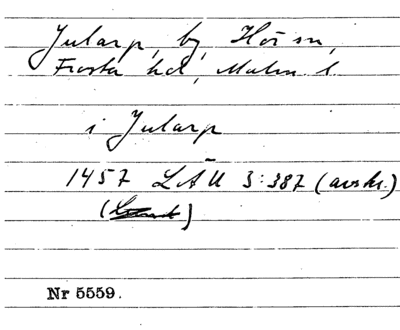 Jularp, by, Hörs sn,
Frosta hd, Malm. l.
i Jularp
1457 LÄU 3:387 (avskr.)
Nr 5559.